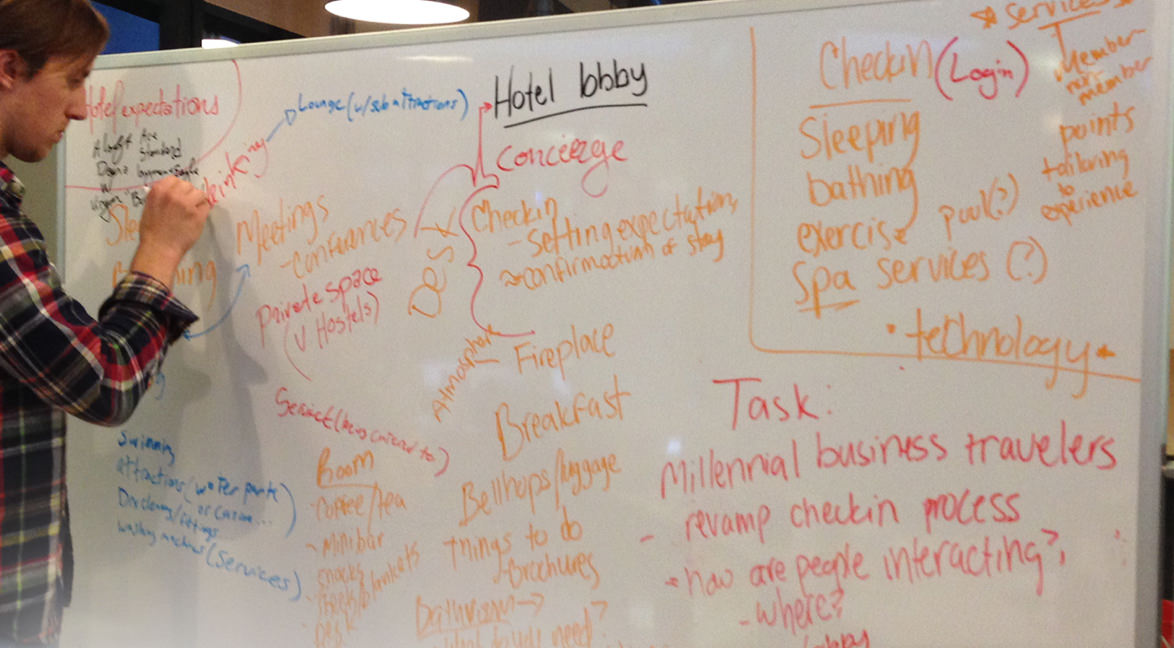 Hotel expectations
Aloft Ace
Standard
W
drinking
Lounge (w/sub attractions)
Meetings
- conferences
Private space
(v Hostels)
Service (being catered to)
swimming
attractions (water parks)
or casino...
Dry cleaning/fittings
washing machines (services)
Room
- coffee/tea
- minibar
snacks
- sheets/blankets
- Desk
Hotel lobby
Concierge
Checkin
- Setting expectations
confirmation of stay
Atmosphere
- Fireplace
Breakfast
Bellhops/luggage
Things to do
- Brochures
Bathroom →
what do you need?
Checkin (Login)
Sleeping
bathing
exercise pool(?)
Spa services (?)
• technology
* services *
Member-
non-
member
points
tailoring
to
experience
Task:
Millennial business travelers
- revamp checkin process
- how are people interacting?
- where?
lobby